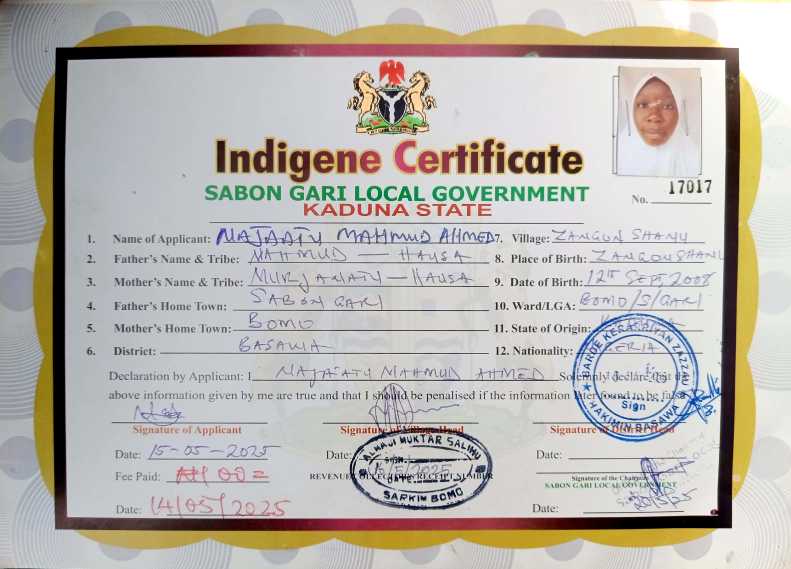 Indigene Certificate
SABON GARI LOCAL GOVERNMENT
KADUNA STATE
No. 17017
1. Name of Applicant: NAJAATU MAHMUD AHMED 7. Village: ZANGON SHANU
2. Father's Name & Tribe: MAHMUD — HAUSA 8. Place of Birth: ZANGON SHANU
3. Mother's Name & Tribe: MURJANATU — HAUSA 9. Date of Birth: 12th SEPT. 2008
4. Father's Home Town: SABON GARI 10. Ward/LGA: BOMO/S/GARI
5. Mother's Home Town: BOMO 11. State of Origin:
6. District: BASAWA 12. Nationality:
Declaration by Applicant: I NAJAATU MAHMUD AHMED Solemnly declare that the
above information given by me are true and that I should be penalised if the information later found to be false
Signature of Applicant Signature of Village Head Signature of District Head
Date: 15-05-2025 Date: Date:
ALHAJI MUKTAR SALIHU
SIGN.
15/5/2025
DATE
SARKIN BOMO
BARDE KERARRIYAN ZAZZAU
Sign
HAKIMIN BASAWA
Fee Paid: REVENUE COLLECTION RECEIPT NUMBER
Signature of the Chairman
SABON GARI LOCAL GOVERNMENT
Date: 14/05/2025 Date: